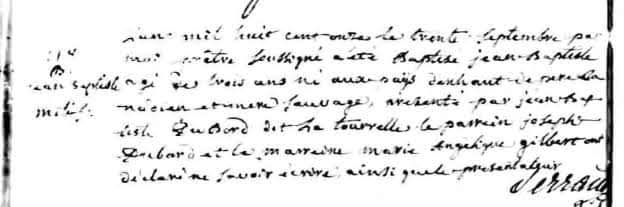 L'an mil huit cent onze le trente septembre par
moi prêtre soussigné a été Baptisé jean-Baptiste
agé de trois ans né aux pays d'enhaut de pere Ca
nadien et mere Sauvage, presenté par jean Ba
tiste DuBord dit La tourrelle le parrein joseph
Dubord et la marreine marie Angelique gilbert ont
déclaré ne savoir écrire, ainsi que le presentateur
B
jean Baptiste
mitif